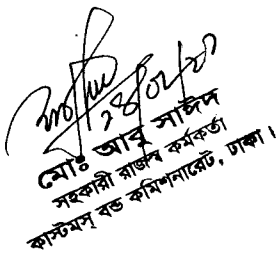 মোঃ আবু সাঈদ
সহকারী রাজস্ব কর্মকর্তা
কাস্টমস্ বন্ড কমিশনারেট, ঢাকা।